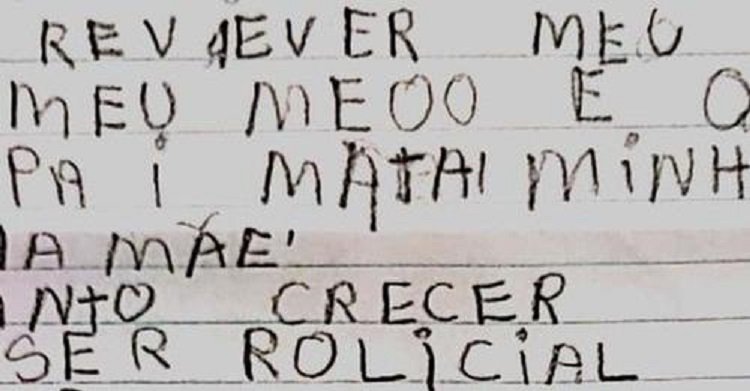 REV AEVER MEU
MEU MEOO E O
PAI MATAI MINH
A MÃE'
NTO CRECER
SER ROLICIAL